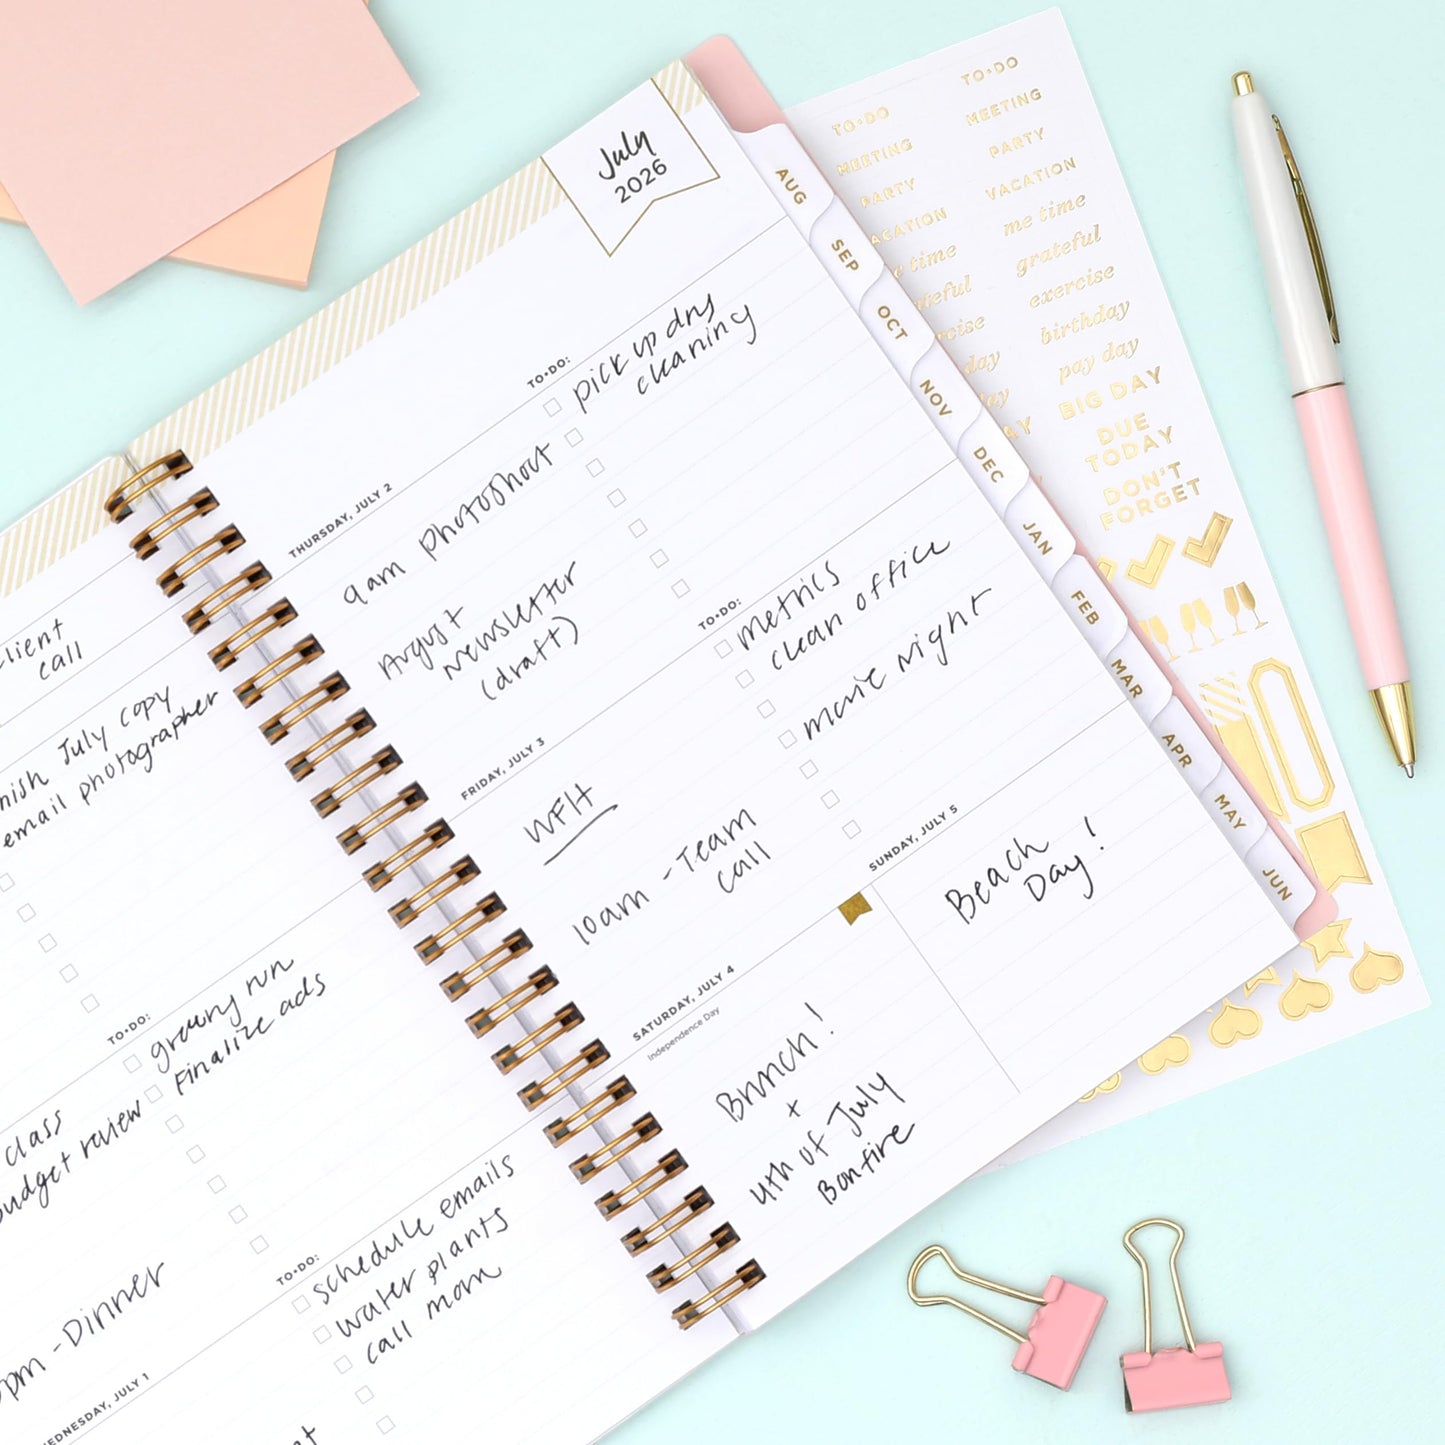 client
call
July copy
email photographer
TO•DO:
grocery run
Finalize ads
class
budget review
- Dinner
WEDNESDAY, JULY 1
TO•DO:
schedule emails
water plants
call mom
July
2026
THURSDAY, JULY 2
9am photoshoot
August
Newsletter
(draft)
TO•DO:
pick up dry
cleaning
FRIDAY, JULY 3
WFH
10am - Team
call
TO•DO:
metrics
clean office
movie night
SATURDAY, JULY 4
Independence Day
Brunch!
+
4th of July
Bonfire
SUNDAY, JULY 5
Beach
Day!
AUG
SEP
OCT
NOV
DEC
JAN
FEB
MAR
APR
MAY
JUN
TO•DO
MEETING
PARTY
VACATION
me time
TO•DO
MEETING
PARTY
VACATION
me time
grateful
exercise
birthday
pay day
BIG DAY
DUE
TODAY
DON'T
FORGET